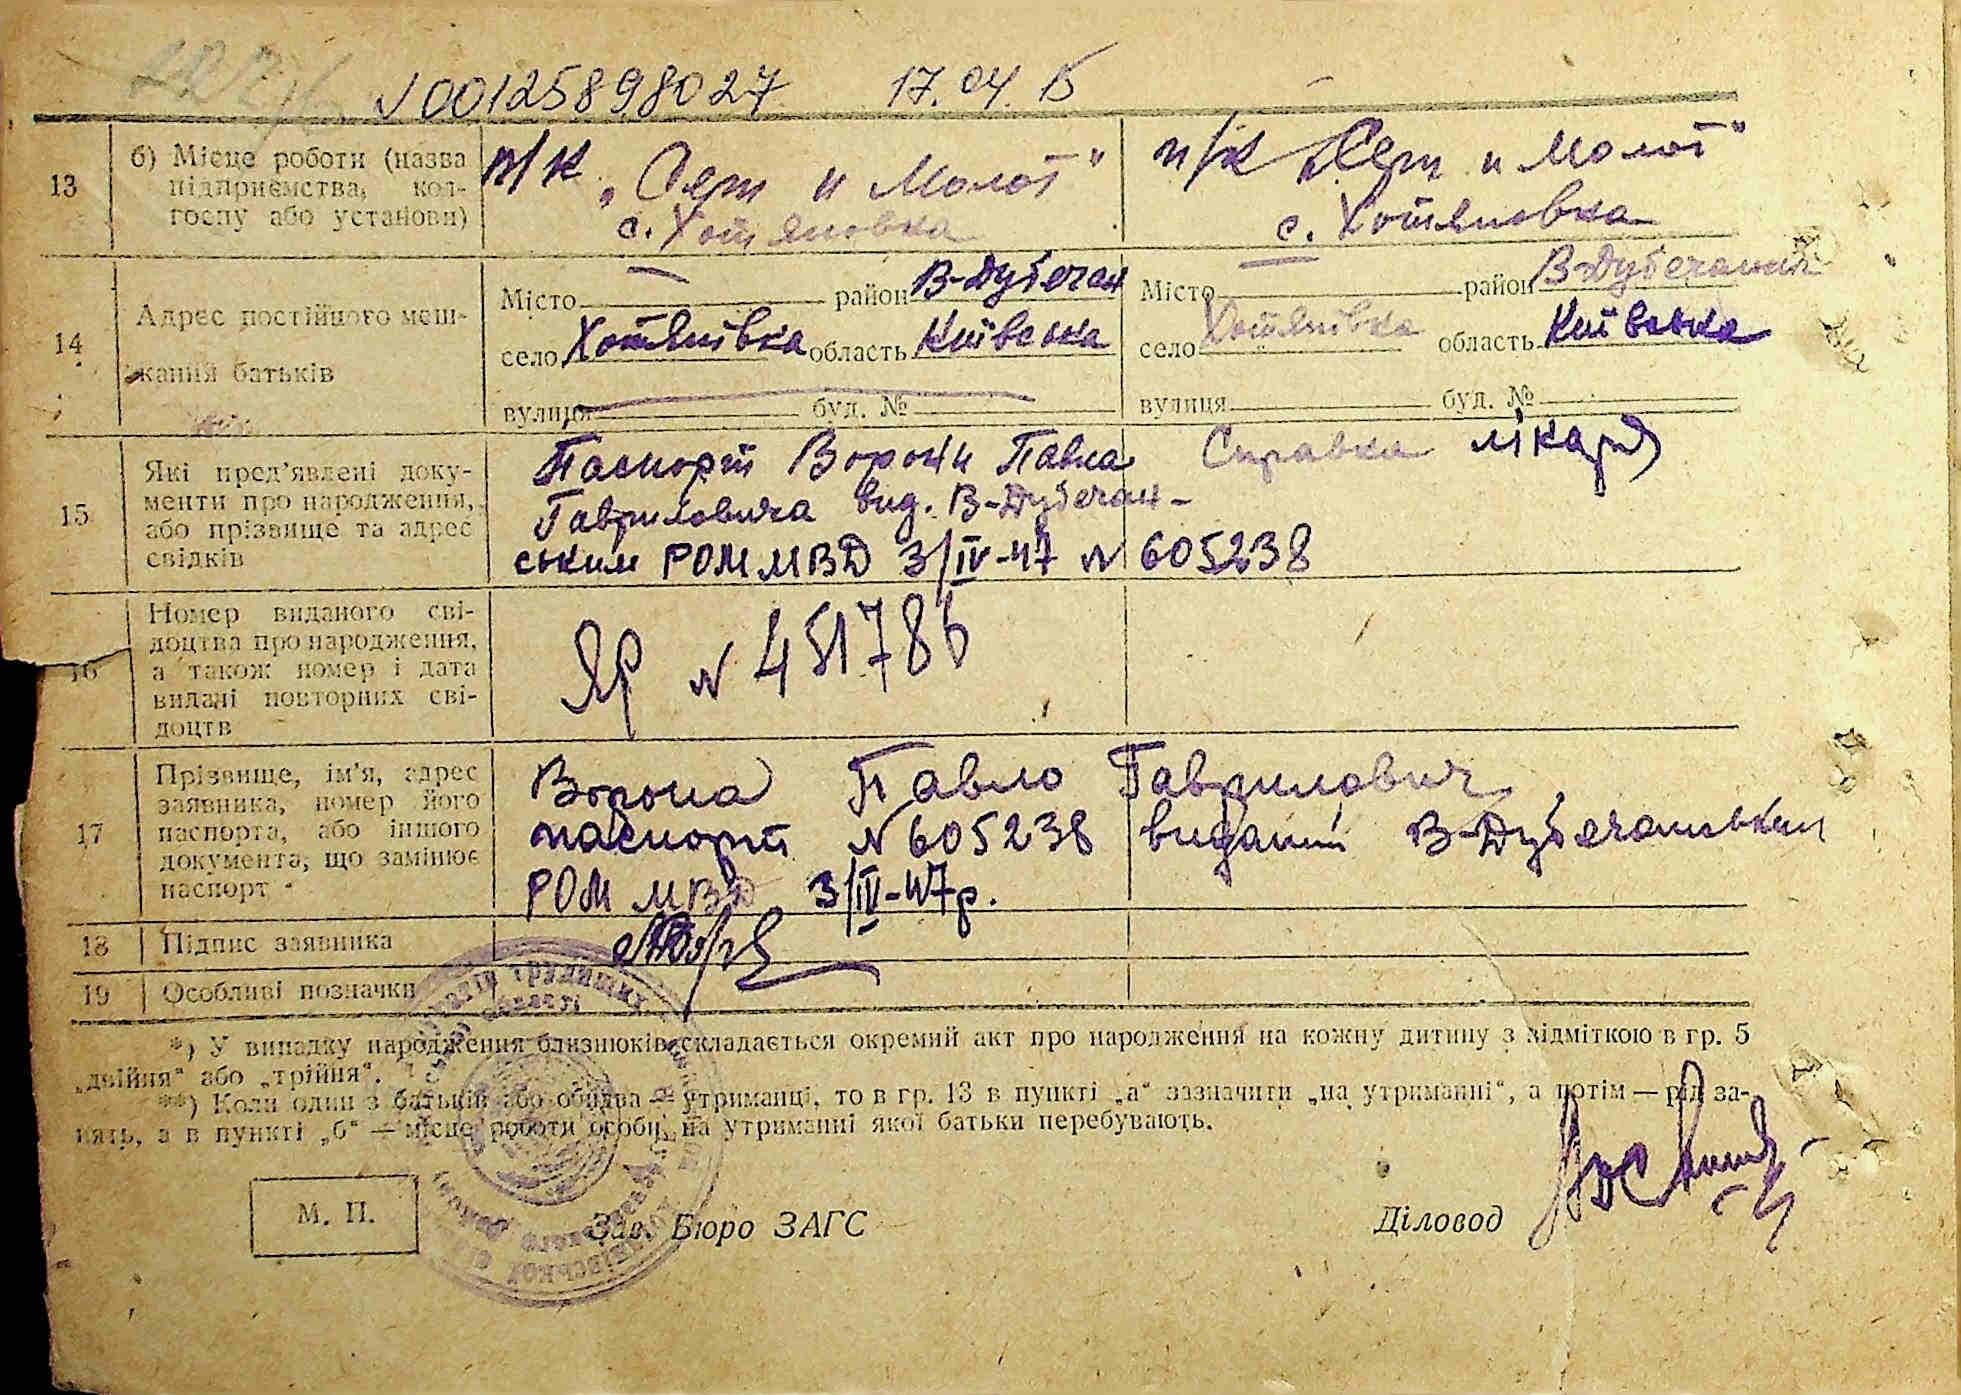 №00125898027 17.04.15
13
б) Місце роботи (назва
підприємства, кол-
госпу або установи)
к „Серп и Молот"
с. Хотяновка
к „Серп и Молот"
с. Хотяновка
14
Адрес постійного меш-
кання батьків
Місто район В-Дубечан
село Хотянівка область Київська
вулиця буд. №
Місто район В-Дубечанський
село Хотянівка область Київська
вулиця буд. №
15
Які пред'явлені доку-
менти про народження,
або прізвище та адрес
свідків
Паспорт Ворони Павла
Гавриловича вид. В-Дубечан-
ським РОМ МВД 3/IV-47 № 605238
Справка лікаря
16
Номер виданого сві-
доцтва про народження,
а також номер і дата
видані повторних сві-
доцтв
ЯР № 451786
17
Прізвище, ім'я, адрес
заявника, номер його
паспорта, або іншого
документа, що замінює
паспорт
Ворона Павло Гаврилович
паспорт №605238 виданий В-Дубечанським
РОМ МВД 3/IV-47р.
18 Підпис заявника
19 Особливі позначки
*) У випадку народження близнюків складається окремий акт про народження на кожну дитину з відміткою в гр. 5
„двійня" або „трійня".
**) Коли один з батьків або обидва — утриманці, то в гр. 13 в пункті „а" зазначити „на утриманні", а потім — рід за-
нять, а в пункті „б" — місце роботи особи, на утриманні якої батьки перебувають.
М. П.
Зав. Бюро ЗАГС
Діловод